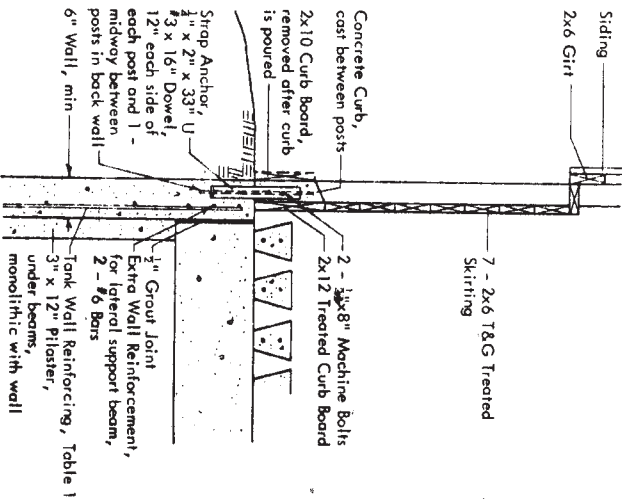 Siding
2x6 Girt
Concrete Curb,
cast between posts
2x10 Curb Board,
removed after curb
is poured
Strap Anchor,
¼" x 2" x 33" U
#3 x 16" Dowel,
12" each side of
each post and 1 -
midway between
posts in back wall
6" Wall, min
7 - 2x6 T&G Treated
Skirting
2 - "x8" Machine Bolts
2x12 Treated Curb Board
½" Grout Joint
Extra Wall Reinforcement,
for lateral support beam,
2 - #6 Bars
Tank Wall Reinforcing, Table 1
3" x 12" Pilaster,
under beams,
monolithic with wall